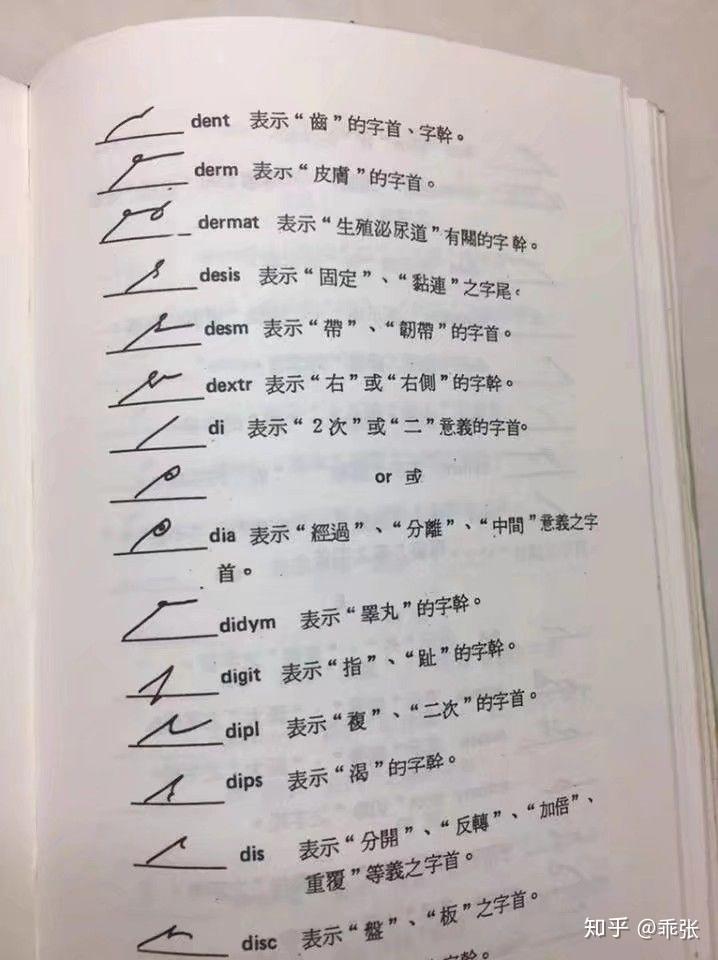 dent 表示“齒”的字首、字幹。
derm 表示“皮膚”的字首。
dermat 表示“生殖泌尿道”有關的字幹。
desis 表示“固定”、“黏連”之字尾。
desm 表示“帶”、“韌帶”的字首。
dextr 表示“右”或“右側”的字幹。
di 表示“2次”或“二”意義的字首。
or 或
dia 表示“經過”、“分離”、“中間”意義之字
首。
didym 表示“睪丸”的字幹。
digit 表示“指”、“趾”的字幹。
dipl 表示“複”、“二次”的字首。
dips 表示“渴”的字幹。
dis 表示“分開”、“反轉”、“加倍”、
重覆”等義之字首。
disc 表示“盤”、“板”之字首。
字幹。
知乎 @乖张